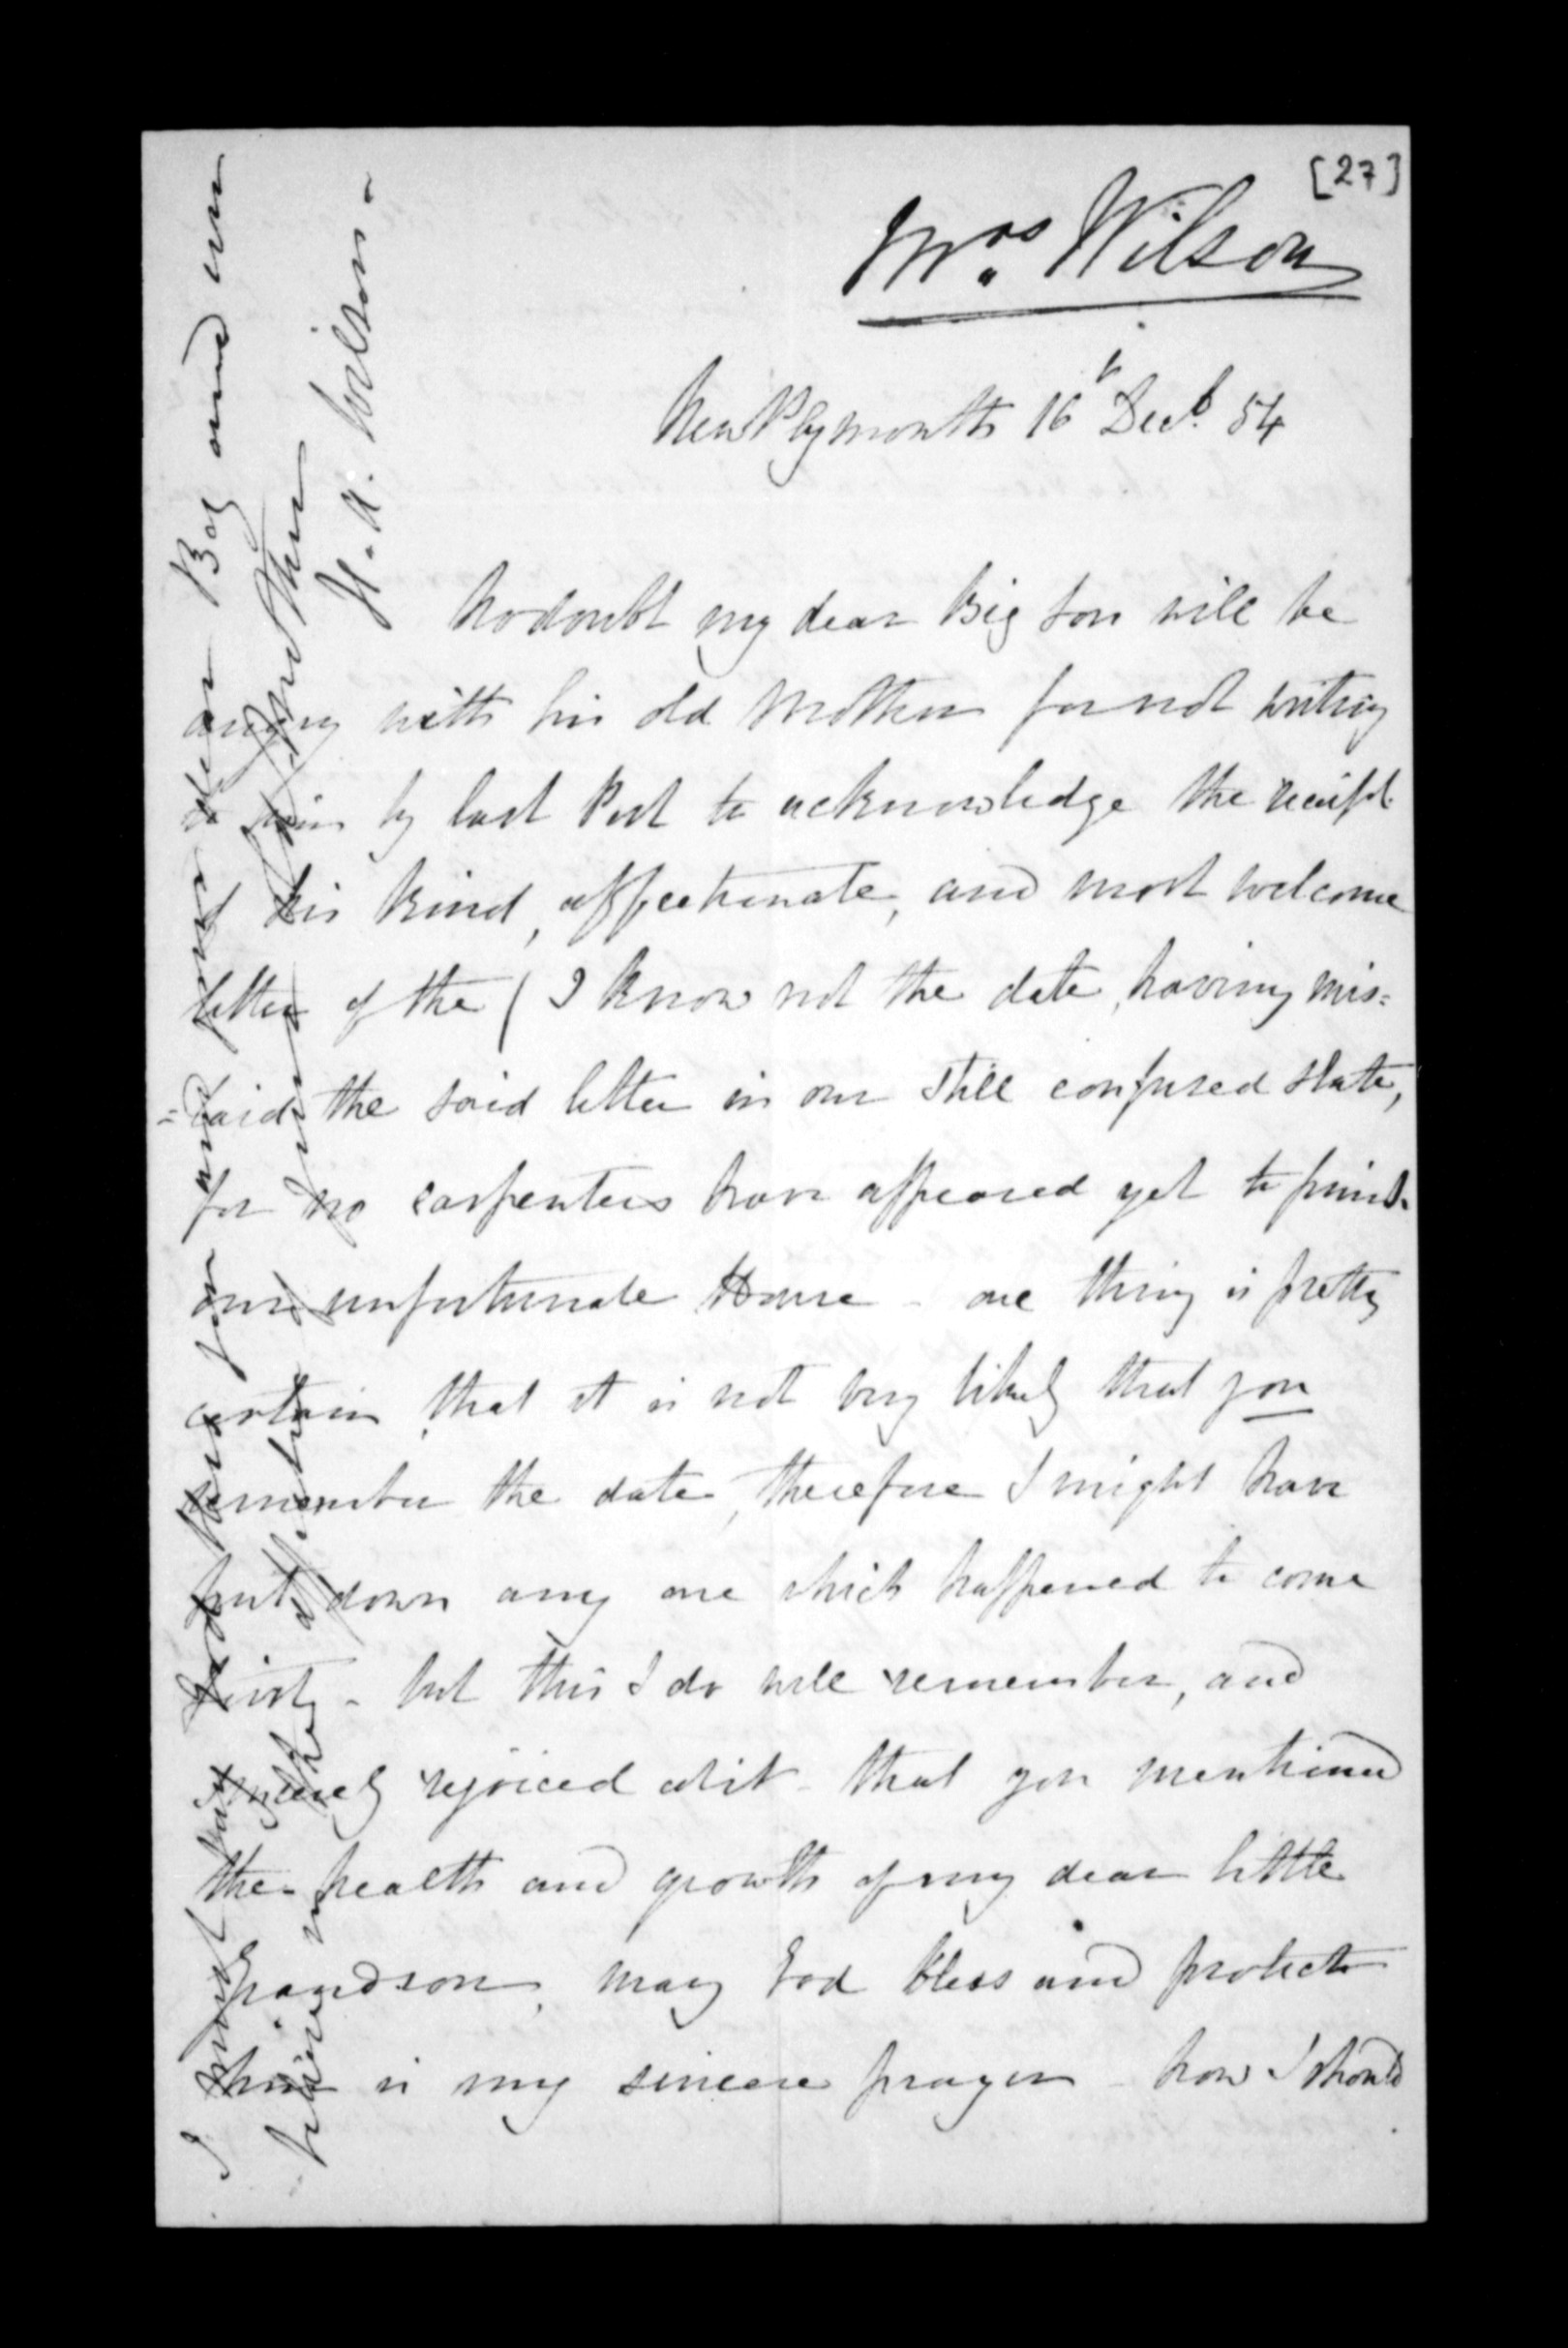 [27]
Mrs. Wilson
New Plymouth 16th Decb. 54
No doubt my dear Big Son will be
angry with his old Mother for not writing
to him by last Post to acknowledge the receipt
of his kind, affectionate, and most welcome
letter of the ( I know not the date, having mis=
=laid the said letter in our still confused state,
for no carpenters have appeared yet to finish
our unfortunate House - one thing is pretty
certain, that it is not very likely that you
remember the date, therefore I might have
put down any one which happened to come
first - but this I do well remember, and
sincerely rejoiced at it - that you mentioned
the health and growth of my dear little
Grandson, may God bless and protect
him is my sincere prayer - how I should
I must say God bless you and your dear Boy and em
believe me the affectionate Mother
H. A. Wilson -